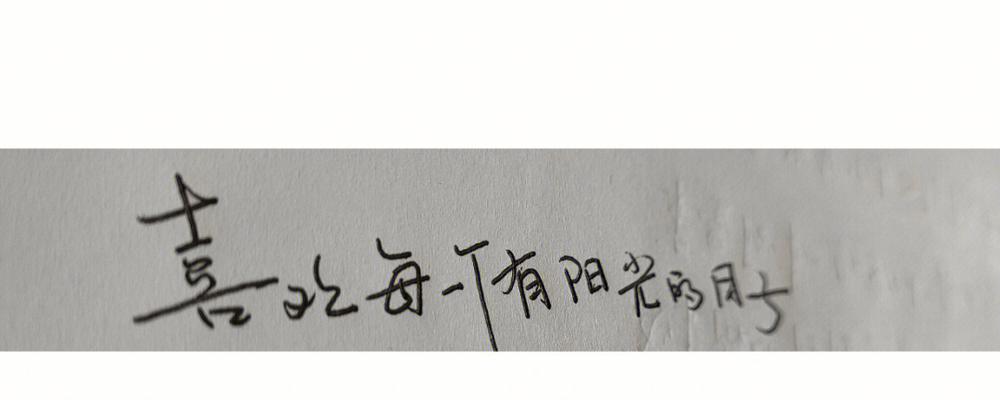 喜欢每一个有阳光的日子